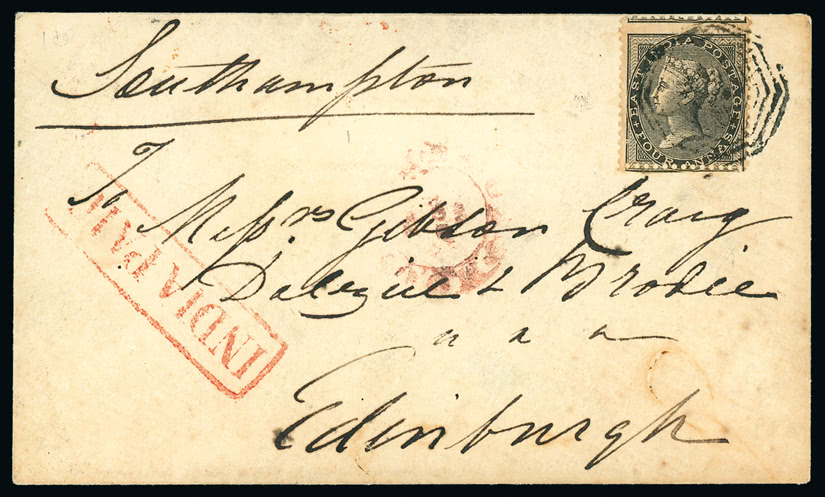 Southampton
EAST INDIA POSTAGE
FOUR ANNAS
To Messrs Gibson Craig
Dalziel & Brodie
Edinburgh
INDIA PAID